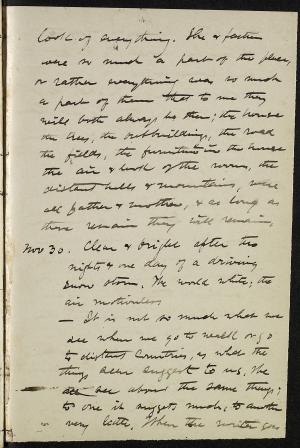 look of everything. She & father
were so much a part of the place,
or rather everything was so much
a part of them that to me they
will both always be there; the house
the trees, the outbuildings, the road
the fields, the furniture in the house
the air & look of the rooms, the
distant hills & mountains, were
all father & mother, & as long as
these remain they will remain,
Nov 30. Clear & bright after two
nights & one day of a driving
snow storm. The world white; the
air motionless
— It is not so much what we
see when we go to or go
to distant countries, as what the
things seen suggest to us. We
all see about the same things;
to one it suggests much; to another
very little. When the writer goes